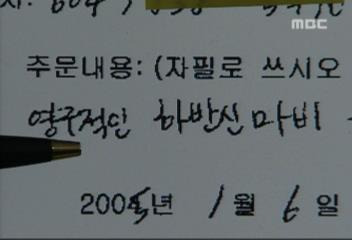 MBC
주문내용: (자필로 쓰시오
영구적인 하반신 마비
2005년 1월 6일